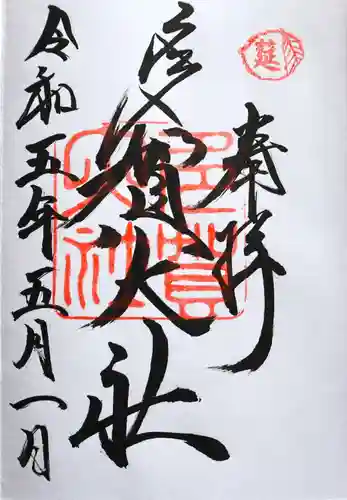 莚
奉拝
多賀大社
多賀
大社
令和五年五月一日